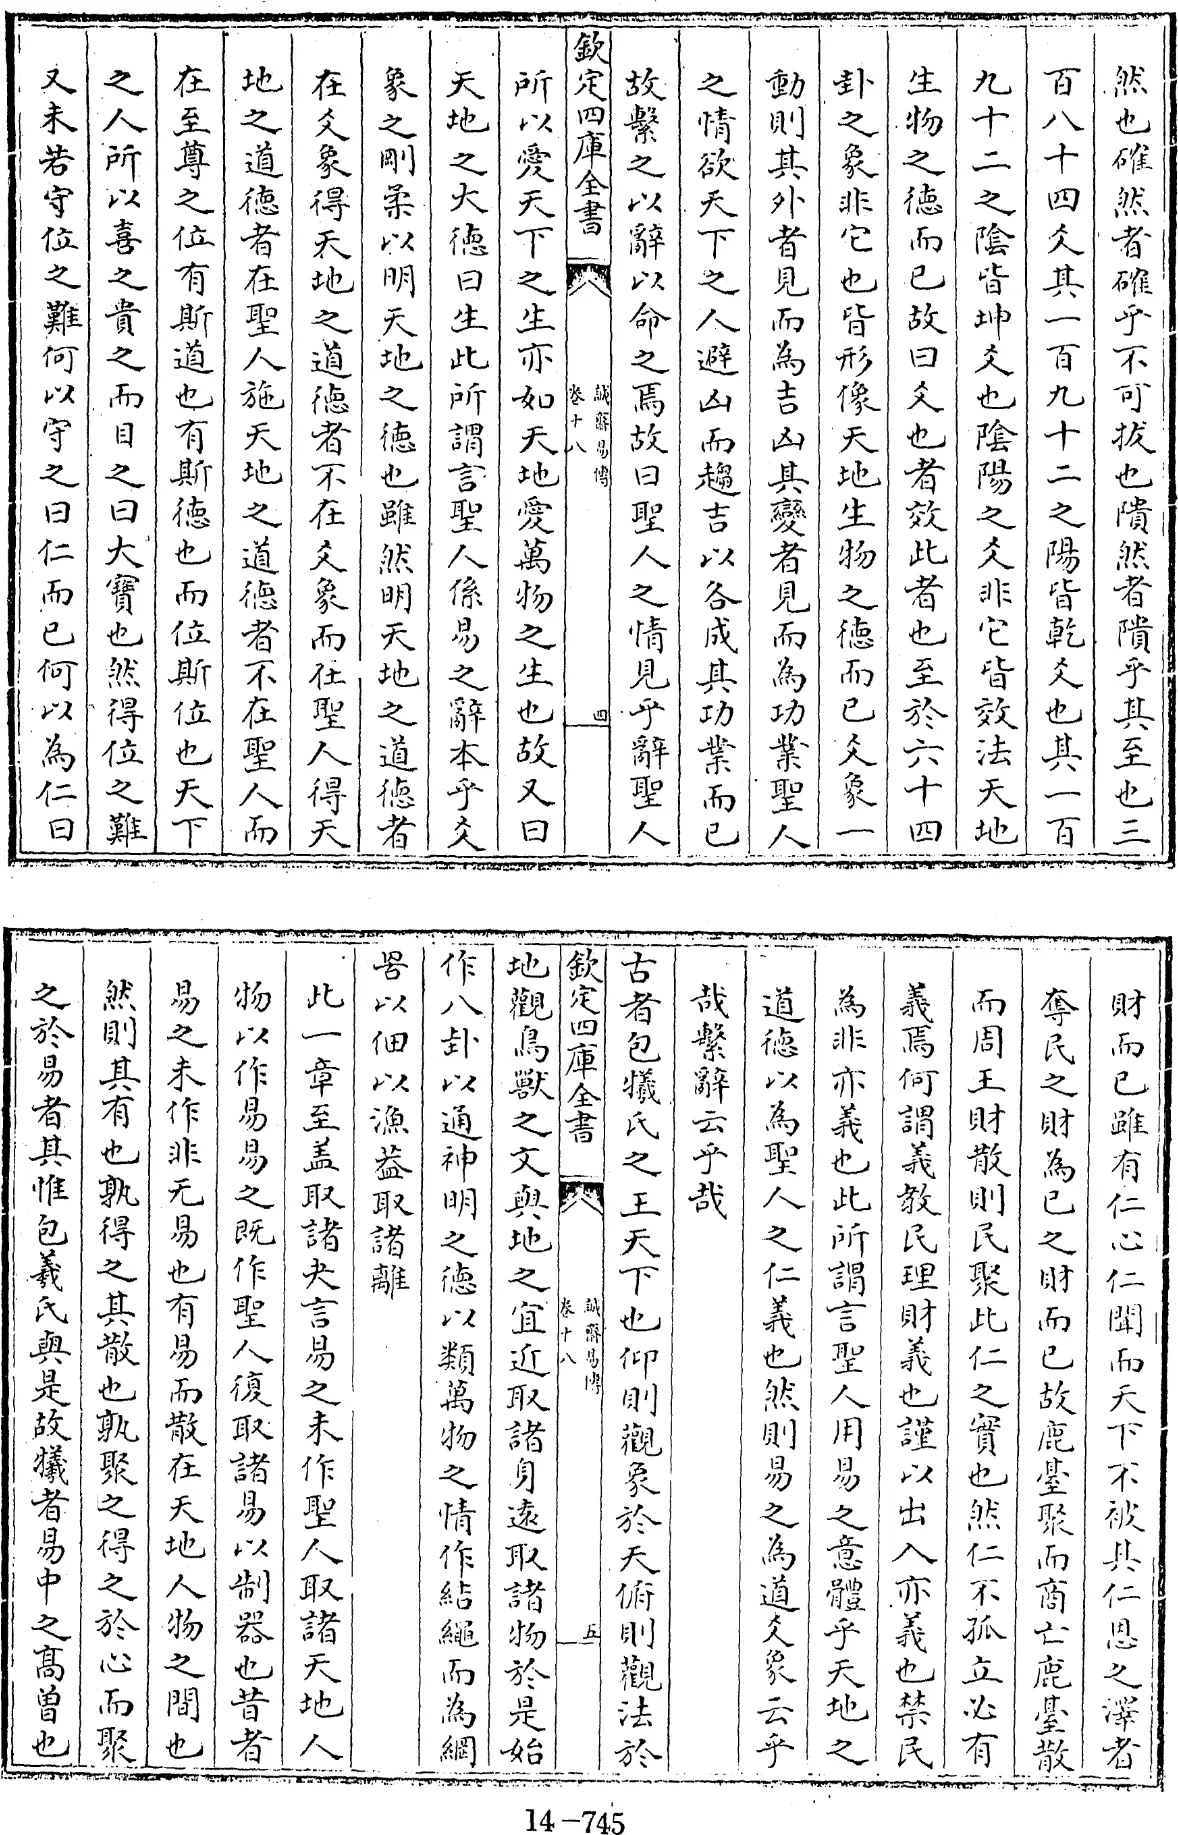 然也確然者確乎不可拔也隤然者隤乎其至也三
百八十四爻其一百九十二之陽皆乾爻也其一百
九十二之陰皆坤爻也陰陽之爻非它皆效法天地
生物之德而已故曰爻也者效此者也至於六十四
卦之象非它也皆形像天地生物之德而已爻象一
動則其外者見而為吉凶其變者見而為功業聖人
之情欲天下之人避凶而趨吉以各成其功業而已
故繫之以辭以命之焉故曰聖人之情見乎辭聖人
欽定四庫全書
誠齋易傳
卷十八
四
所以愛天下之生亦如天地愛萬物之生也故又曰
天地之大德曰生此所謂言聖人係易之辭本乎爻
象之剛柔以明天地之德也雖然明天地之道德者
在爻象得天地之道德者不在爻象而在聖人得天
地之道德者在聖人施天地之道德者不在聖人而
在至尊之位有斯道也有斯德也而位斯位也天下
之人所以喜之貴之而目之曰大寶也然得位之難
又未若守位之難何以守之曰仁而已何以為仁曰
財而已雖有仁心仁聞而天下不被其仁恩之澤者
奪民之財為已之財而已故鹿臺聚而商亡鹿臺散
而周王財散則民聚此仁之實也然仁不孤立必有
義焉何謂義教民理財義也謹以出入亦義也禁民
為非亦義也此所謂言聖人用易之意體乎天地之
道德以為聖人之仁義也然則易之為道爻象云乎
哉繫辭云乎哉
古者包犧氏之王天下也仰則觀象於天俯則觀法於
欽定四庫全書
誠齋易傳
卷十八
五
地觀鳥獸之文與地之宜近取諸身遠取諸物於是始
作八卦以通神明之德以類萬物之情作結繩而為網
罟以佃以漁葢取諸離
此一章至盖取諸夬言易之未作聖人取諸天地人
物以作易易之既作聖人復取諸易以制器也昔者
易之未作非无易也有易而散在天地人物之間也
然則其有也孰得之其散也孰聚之得之於心而聚
之於易者其惟包羲氏與是故犧者易中之髙曾也
14-745